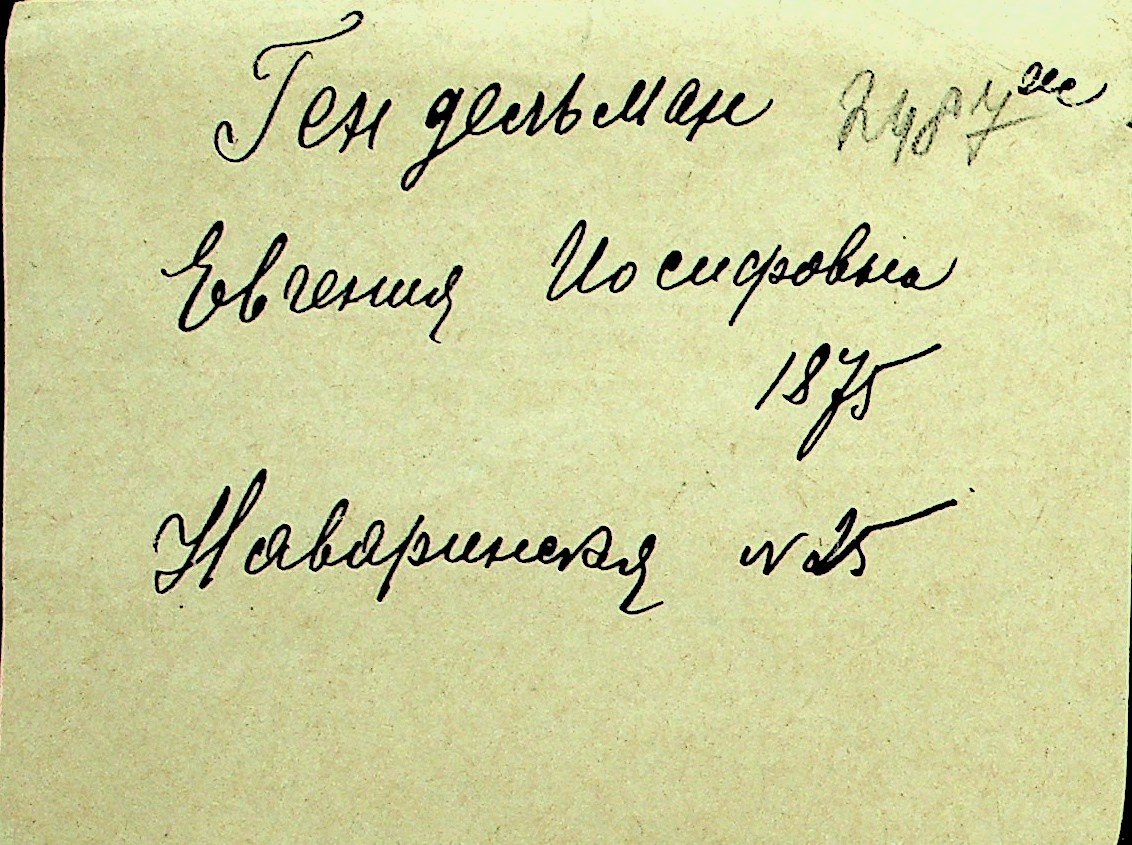 Гендельман 2487 же
Евгения Иосифовна
1875
Наваринская № 25